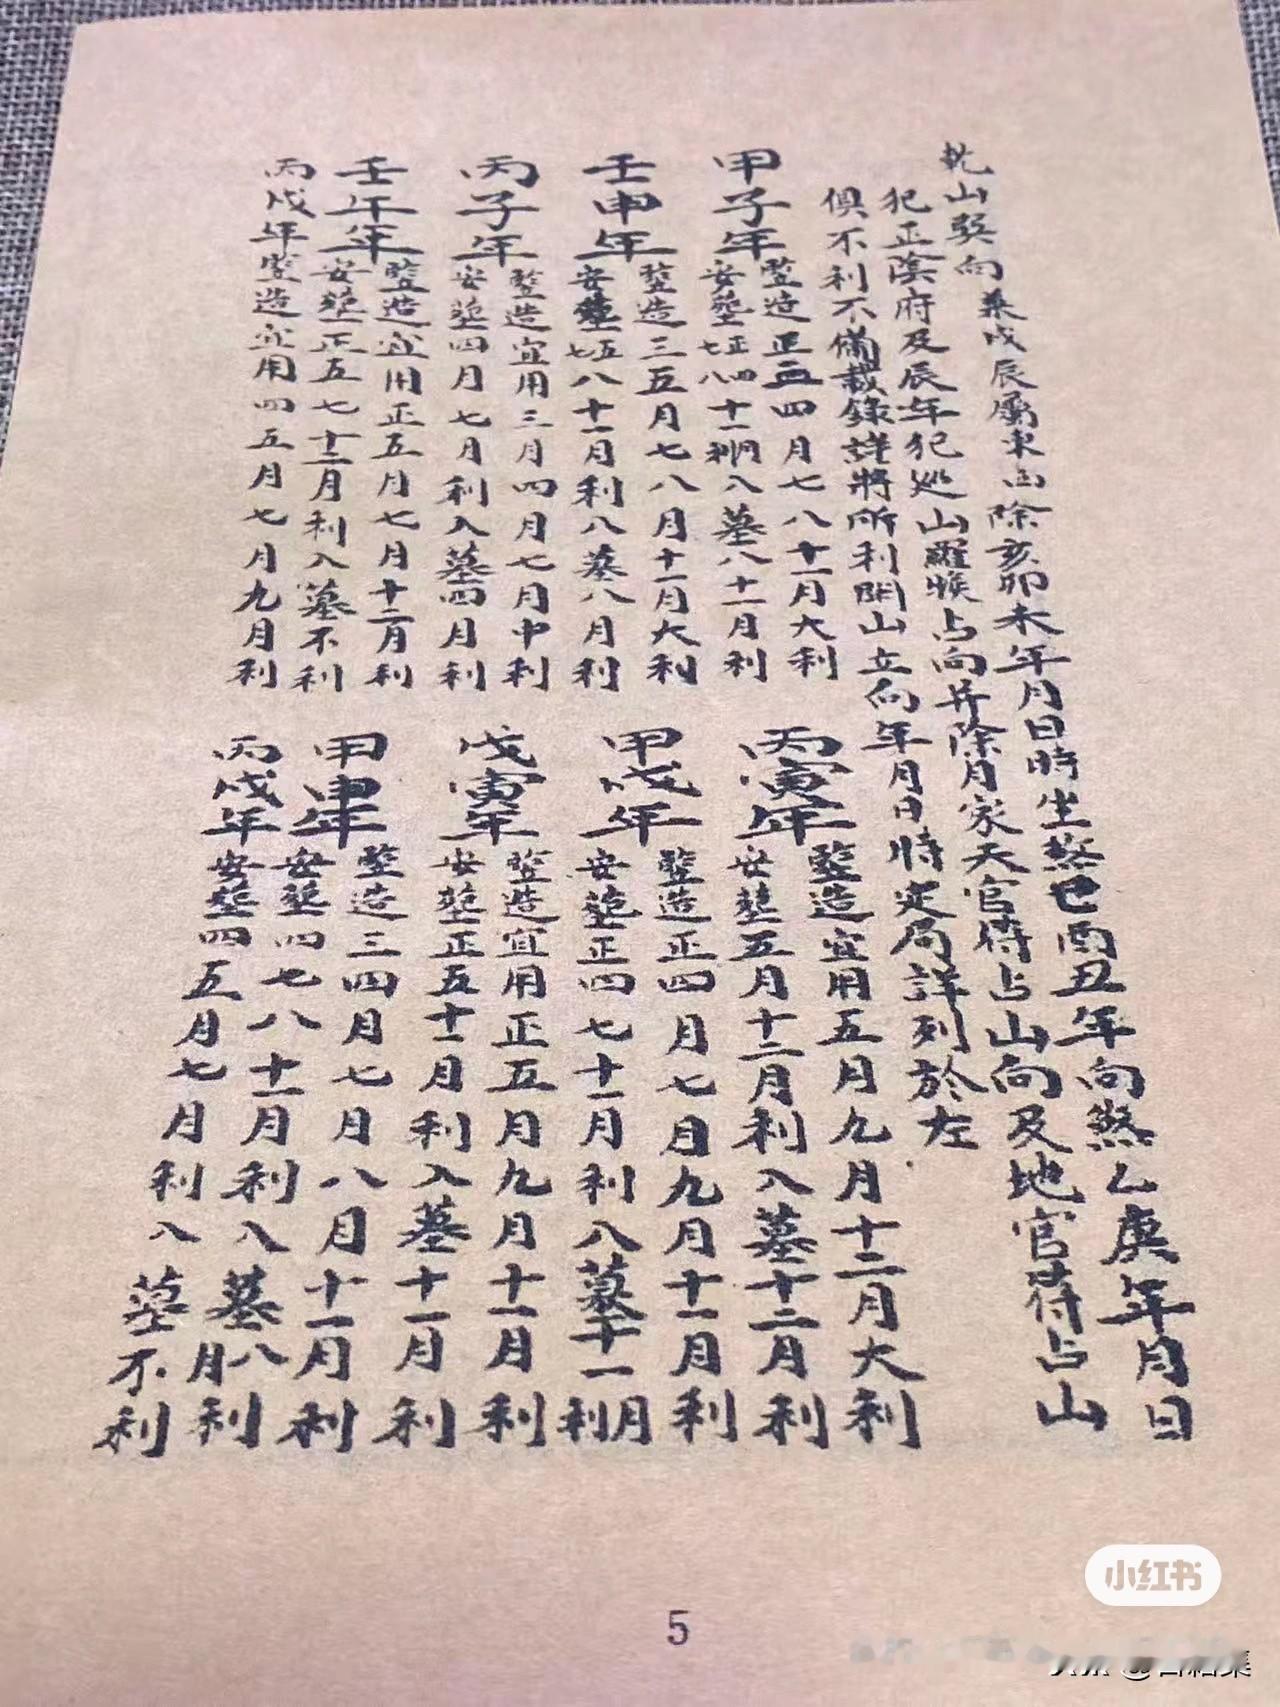 乾山巽向 兼戌辰屬東山除亥卯未年月日時坐煞巳酉丑年向煞乙庚年月日
犯正陰府及辰年犯巡山羅猴占向并除月家天官符占山向及地官符占山
俱不利不備載錄詳將所利開山立向年月日時定局詳列於左
甲子年 豎造正二四月七八十一月大利
安塟正四七八十一月利入墓八十一月利
丙寅年 豎造宜用五月九月十二月大利
安塟五月十二月利入墓十二月利
壬申年 豎造三五月七八月十一月大利
安塟五七八十一月利入墓八月利
甲戌年 豎造正四月七月九月十一月利
安塟正四七十一月利入墓十一月利
丙子年 豎造宜用三月四月七月中利
安塟四月七月利入墓四月利
戊寅年 豎造宜用正五月九月十一月利
安塟正五十一月利入墓十一月利
壬午年 豎造宜用正五月七月十二月利
安塟正五七十二月利入墓不利
甲申年 豎造三四月七月八月十一月利
安塟四七八十一月利入墓八月利
丙戌年豎造宜用四五月七月九月利
丙戌年 安塟四五月七月利入墓不利
5
小红书